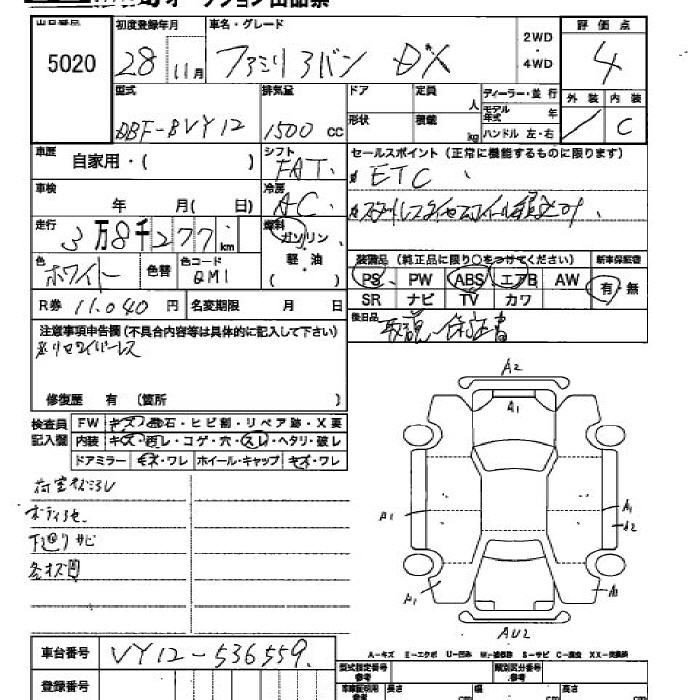 オークション出品票
出品番号 初度登録年月 車名・グレード 2WD ・ 4WD 評価点
5020 28 11月 ファミリアバン DX 4
型式 排気量 ドア 定員 人 ディーラー・並行 外装 内装
DBF-BVY12 1500 cc 形状 積載 kg モデル年式 年 ハンドル 左・右 / C
車歴 自家用・( ) シフト FAT セールスポイント(正常に機能するものに限ります)
ETC
車検 年 月( 日) 冷房 AC
走行 3万8千277km 燃料 ガソリン 軽・油 ( )
装備品(純正品に限り〇をつけてください) 新車保証書
PS PW ABS エアB AW 有・無
SR ナビ TV カワ
色 ホワイト 色替 色コード QM1
R券 11.040 円 名変期限 月 日
後日品 取説 保証書
注意事項申告欄(不具合内容等は具体的に記入して下さい)
修復歴 有 (箇所 )
検査員記入欄 FW キズ・飛石・ヒビ割・リペア跡・X要
内装 キズ・汚レ・コゲ・穴・スレ・ヘタリ・破レ
ドアミラー キズ・ワレ ホイール・キャップ キズ・ワレ
荷室キズコスレ
ボディ色セ
下廻りサビ
各キズ凹
A2
A1
A1 A1
A2
A1 A1
AU2
A-キズ E-エクボ U-凹み W-補修跡 S-サビ C-腐食 XX-交換済
車台番号 VY12-536559
登録番号
型式指定番号 参考 類別区分番号 参考
車庫証明用 参考 長さ cm 幅 cm 高さ cm